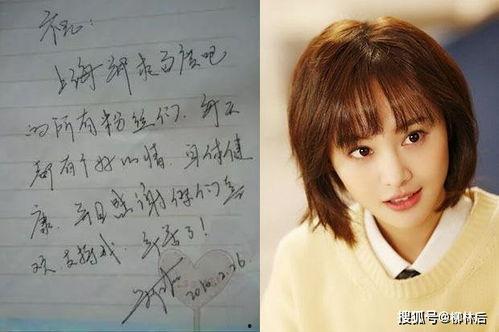 祝：
上海郑爽百度吧
的所有粉丝们、每天
都有个好心情、身体健
康、并且感谢你们喜
欢、支持我、辛苦了！
2010.2.26
搜狐号@柳林后